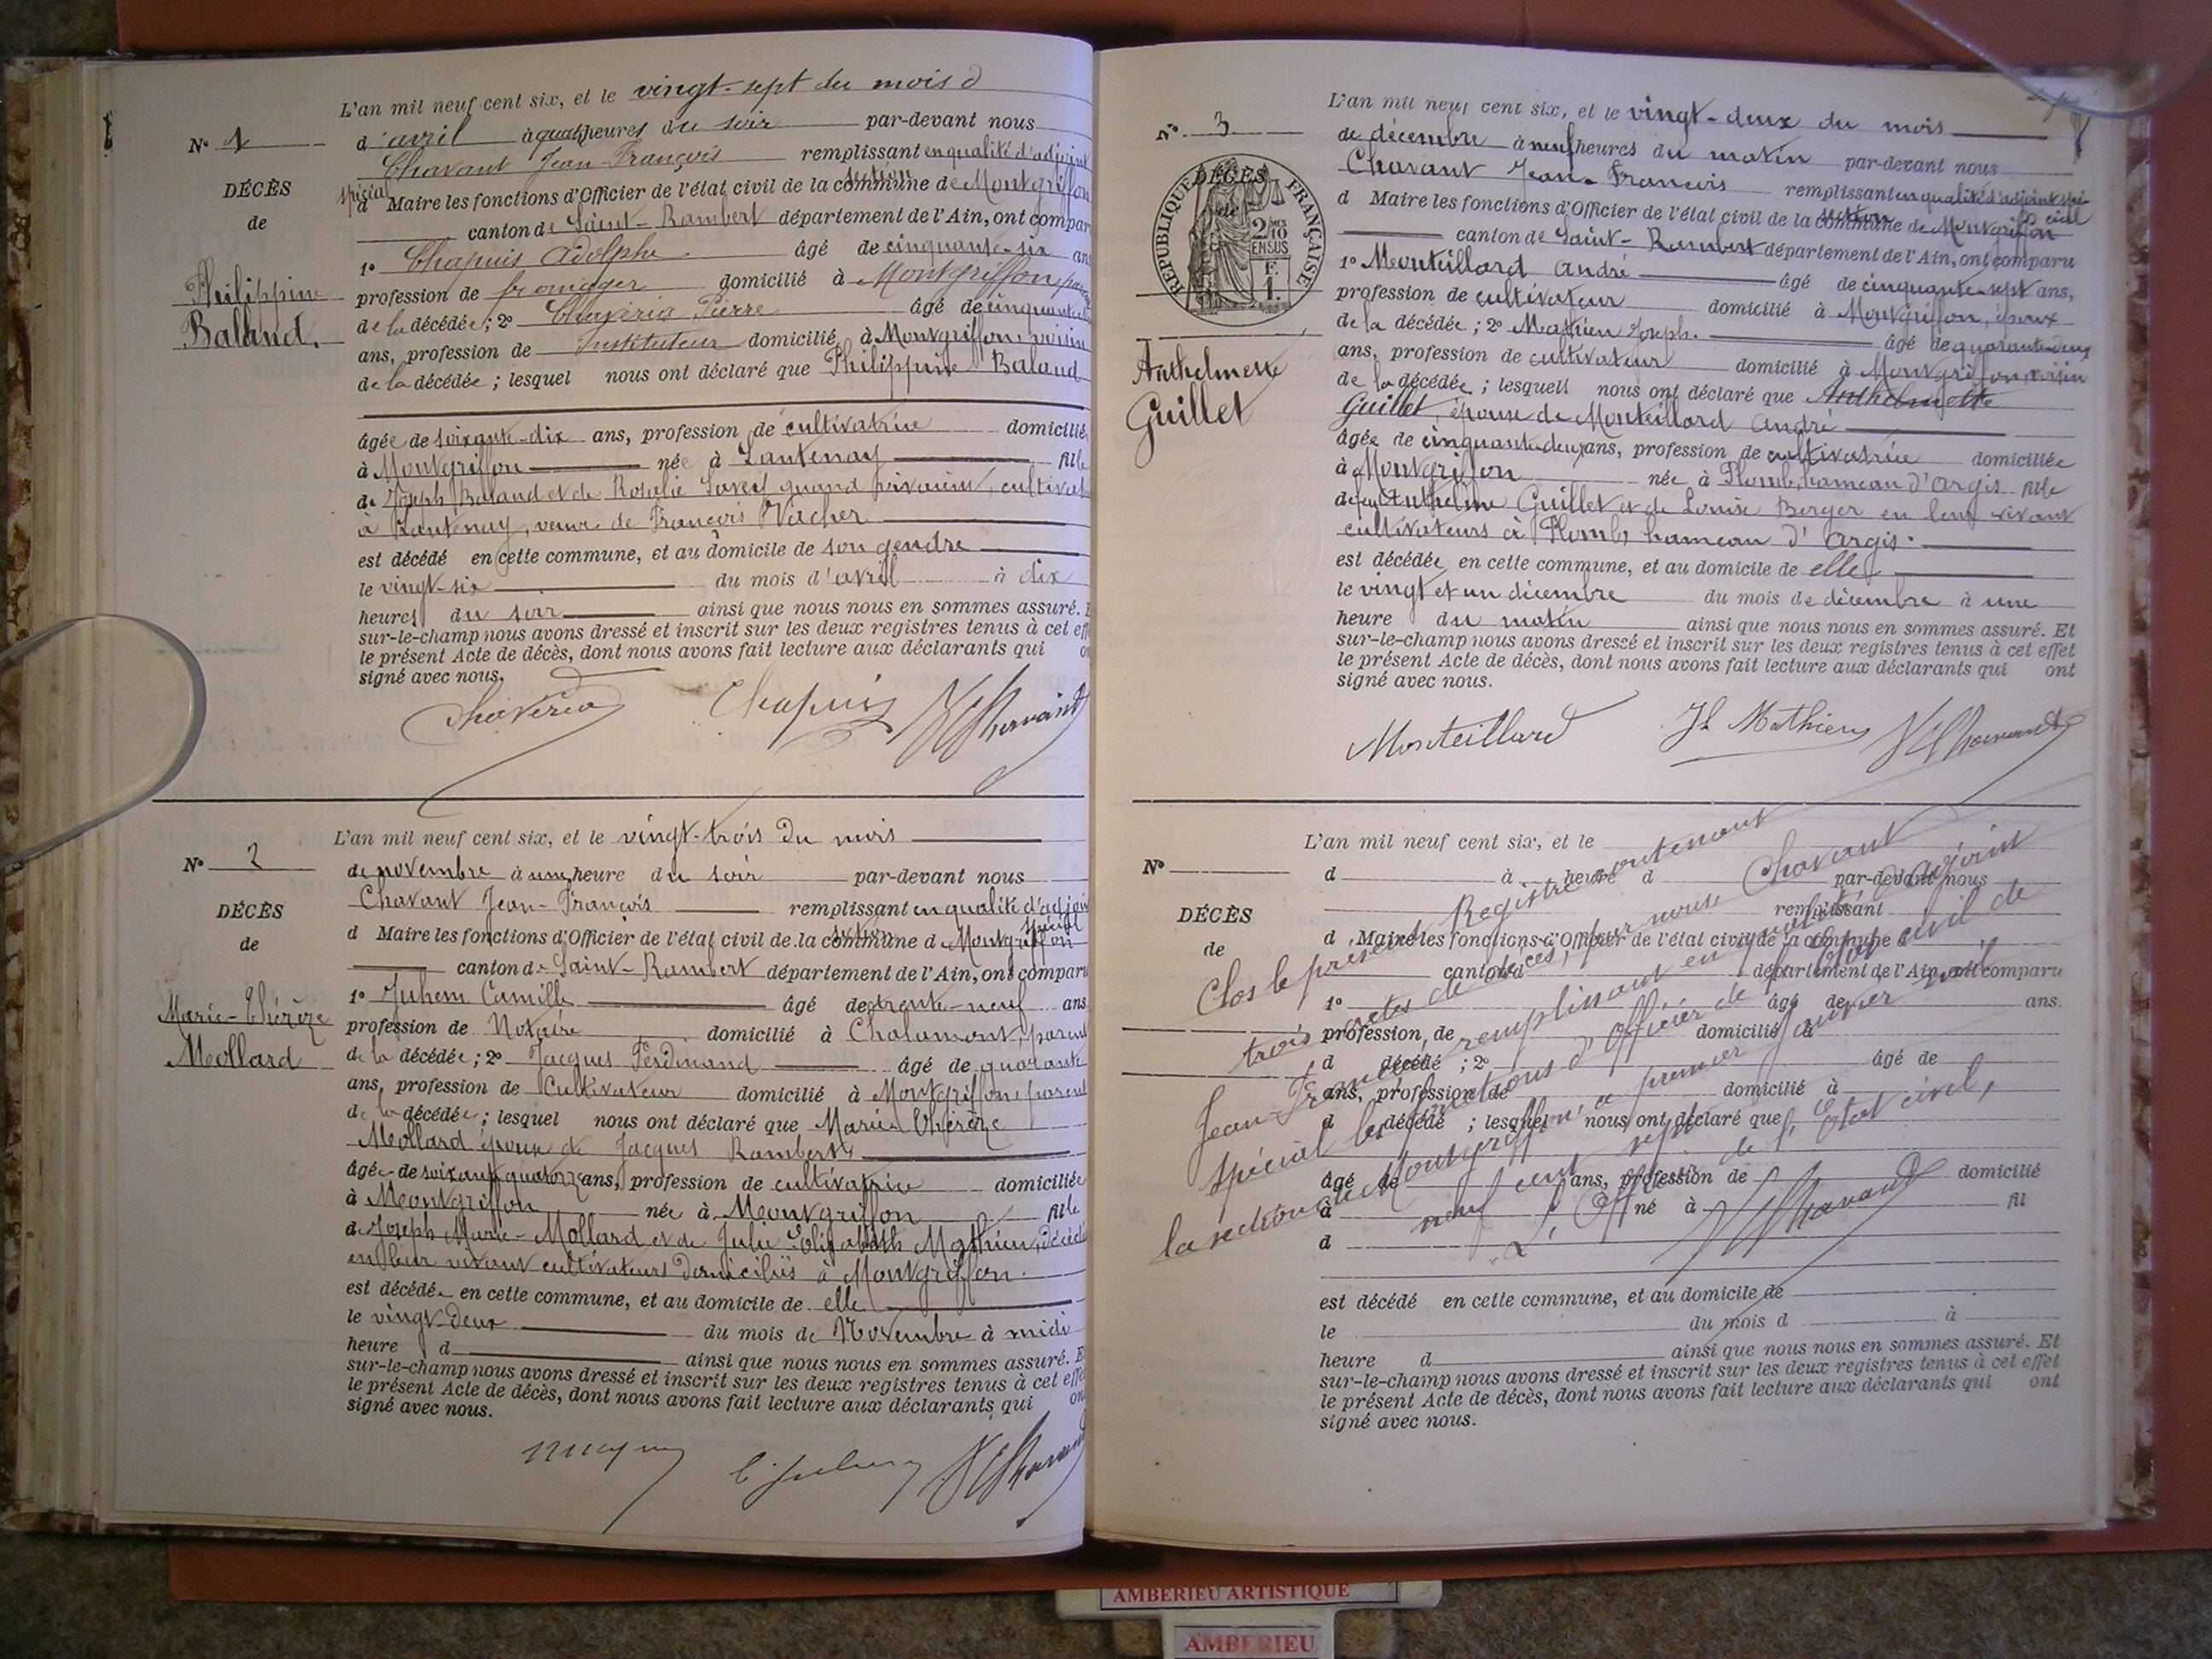 L'an mil neuf cent six, et le vingt-sept du mois d
N° 1
d'avril à quatre heures du soir par-devant nous
Chavant Jean-François remplissant en qualité d'adjoint
spécial
DÉCÈS
de
d Maire les fonctions d'Officier de l'état civil de la commune section de Montgriffon
canton de Saint-Rambert département de l'Ain, ont compar
1° Chapuis Adolphe âgé de cinquante-six ans
Philippine
Baland.
profession de fromager domicilié à Montgriffon, paren
de la décédée; 2° Chaveria Pierre âgé de cinquante
ans, profession de Instituteur domicilié à Montgriffon, voisin
de la décédée; lesquel nous ont déclaré que Philippine Baland
âgée de soixante-dix ans, profession de cultivatrice domiciliée
à Montgriffon née à Lantenay fille
de Joseph Baland et de Rosalie quand vivaient, cultivat
à Lantenay, veuve de François Vacher
est décédé en cette commune, et au domicile de son gendre
le vingt-six du mois d'avril à dix
heures du soir ainsi que nous nous en sommes assuré. E
sur-le-champ nous avons dressé et inscrit sur les deux registres tenus à cet eff
le présent Acte de décès, dont nous avons fait lecture aux déclarants qui on
signé avec nous.
Chaveria Chapuis JF Chavant
L'an mil neuf cent six, et le vingt-trois du mois
N° 2
de novembre à une heure du soir par-devant nous
Chavant Jean-François remplissant en qualité d'adjoin
spécial
DÉCÈS
de
d Maire les fonctions d'Officier de l'état civil de la commune section de Montgriffon
canton de Saint-Rambert département de l'Ain, ont comparu
1° Juhem Camille âgé de trente-neuf ans
Marie-Thérèze
Mollard
profession de Notaire domicilié à Chalamont, parent
de la décédée; 2° Jacques Ferdinand âgé de quarante
ans, profession de Cultivateur domicilié à Montgriffon, parent
de la décédée; lesquel nous ont déclaré que Marie Thérèze
Mollard épouse de Jacques Rambert
âgée de soixante quatorze ans, profession de cultivatrice domiciliée
à Montgriffon née à Montgriffon fille
de Joseph Marie-Mollard et de Julie Elisabeth Mathieu, décéd
en leur vivant cultivateurs domiciliés à Montgriffon.
est décédée en cette commune, et au domicile de elle
le vingt-deux du mois de Novembre à midi
heure d ainsi que nous nous en sommes assuré. E
sur-le-champ nous avons dressé et inscrit sur les deux registres tenus à cet effe
le présent Acte de décès, dont nous avons fait lecture aux déclarants qui on
signé avec nous.
C. Juhem JF Chavant
L'an mil neuf cent six, et le vingt-deux du mois
N° 3
de décembre à neuf heures du matin par-devant nous
Chavant Jean-François remplissant en qualité d'adjoint spé-
cial
RÉPUBLIQUE FRANÇAISE
DÉCÈS
de
2/10 EN SUS
F.
1.
d Maire les fonctions d'Officier de l'état civil de la commune section de Montgriffon
canton de Saint-Rambert département de l'Ain, ont comparu
1° Monteillard André âgé de cinquante-sept ans,
profession de cultivateur domicilié à Montgriffon, époux
de la décédée; 2° Mathieu Joseph. âgé de quarante-deux
Anthelmette
Guillet
ans, profession de cultivateur domicilié à Montgriffon, voisin
de la décédée; lesquels nous ont déclaré que Anthelmette
Guillet, épouse de Monteillard André
âgée de cinquante-deux ans, profession de cultivatrice domiciliée
à Montgriffon née à Plomb, hameau d'Argis fille
de feu Anthelme Guillet et de Louise Berger en leur vivant
cultivateurs à Plomb, hameau d'Argis.
est décédée en cette commune, et au domicile de elle
le vingt et un décembre du mois de décembre à une
heure du matin ainsi que nous nous en sommes assuré. Et
sur-le-champ nous avons dressé et inscrit sur les deux registres tenus à cet effet
le présent Acte de décès, dont nous avons fait lecture aux déclarants qui ont
signé avec nous.
Monteillard Jh Mathieu JF Chavant
L'an mil neuf cent six, et le
N°
d à heure d par-devant nous
remplissant
DÉCÈS
de
d Maire les fonctions d'Officier de l'état civil de la commune d
canton d département de l'Ain, ont comparu
1° âgé de ans.
profession de domicilié à
d décédé ; 2° âgé de
ans, profession de domicilié à
d décédé ; lesquel nous ont déclaré que
âgé de ans, profession de domicilié
à né à fil
d
est décédé en cette commune, et au domicile de
le du mois d à
heure d ainsi que nous nous en sommes assuré. Et
sur-le-champ nous avons dressé et inscrit sur les deux registres tenus à cet effet
le présent Acte de décès, dont nous avons fait lecture aux déclarants qui ont
signé avec nous.
Clos le présent Registre contenant
trois actes de décès, par nous Chavant
Jean-François remplissant en qualité d'adjoint
spécial les fonctions d'Officier de l'état civil de
la section de Montgriffon, ce premier Janvier mil
neuf cent sept.
L'Off. de l'Etat civil,
JF Chavant
AMBERIEU ARTISTIQUE
AMBERIEU